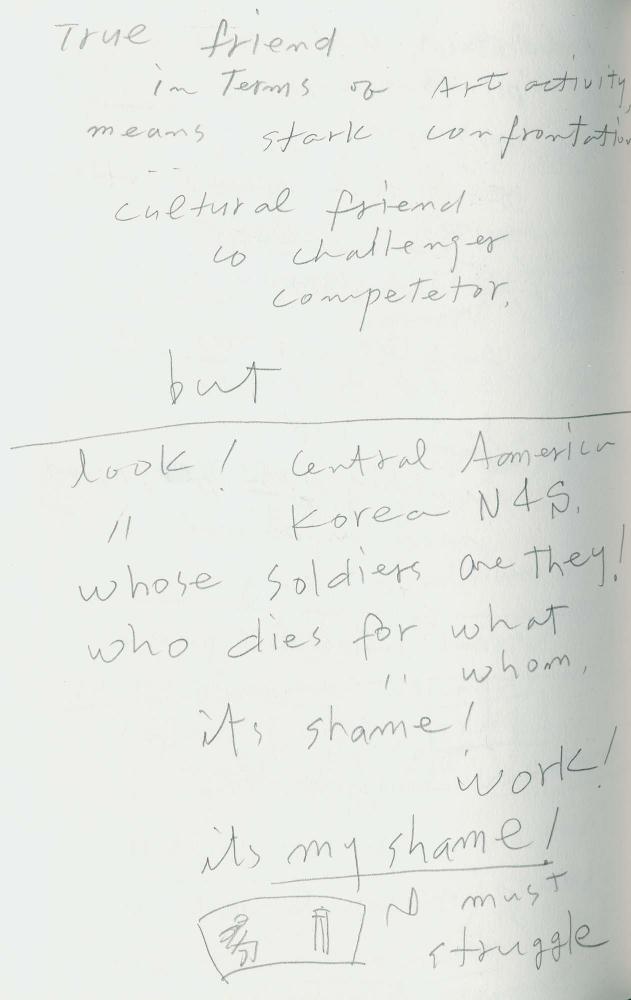 True friend
in Terms of Art activity,
means stark confrontation
cultural friend
is challenger
competetor.
but
look! Central Aamerica
〃 Korea N & S.
whose soldiers are they!
who dies for what
〃 whom,
its shame!
work!
its my shame!
N must
struggle